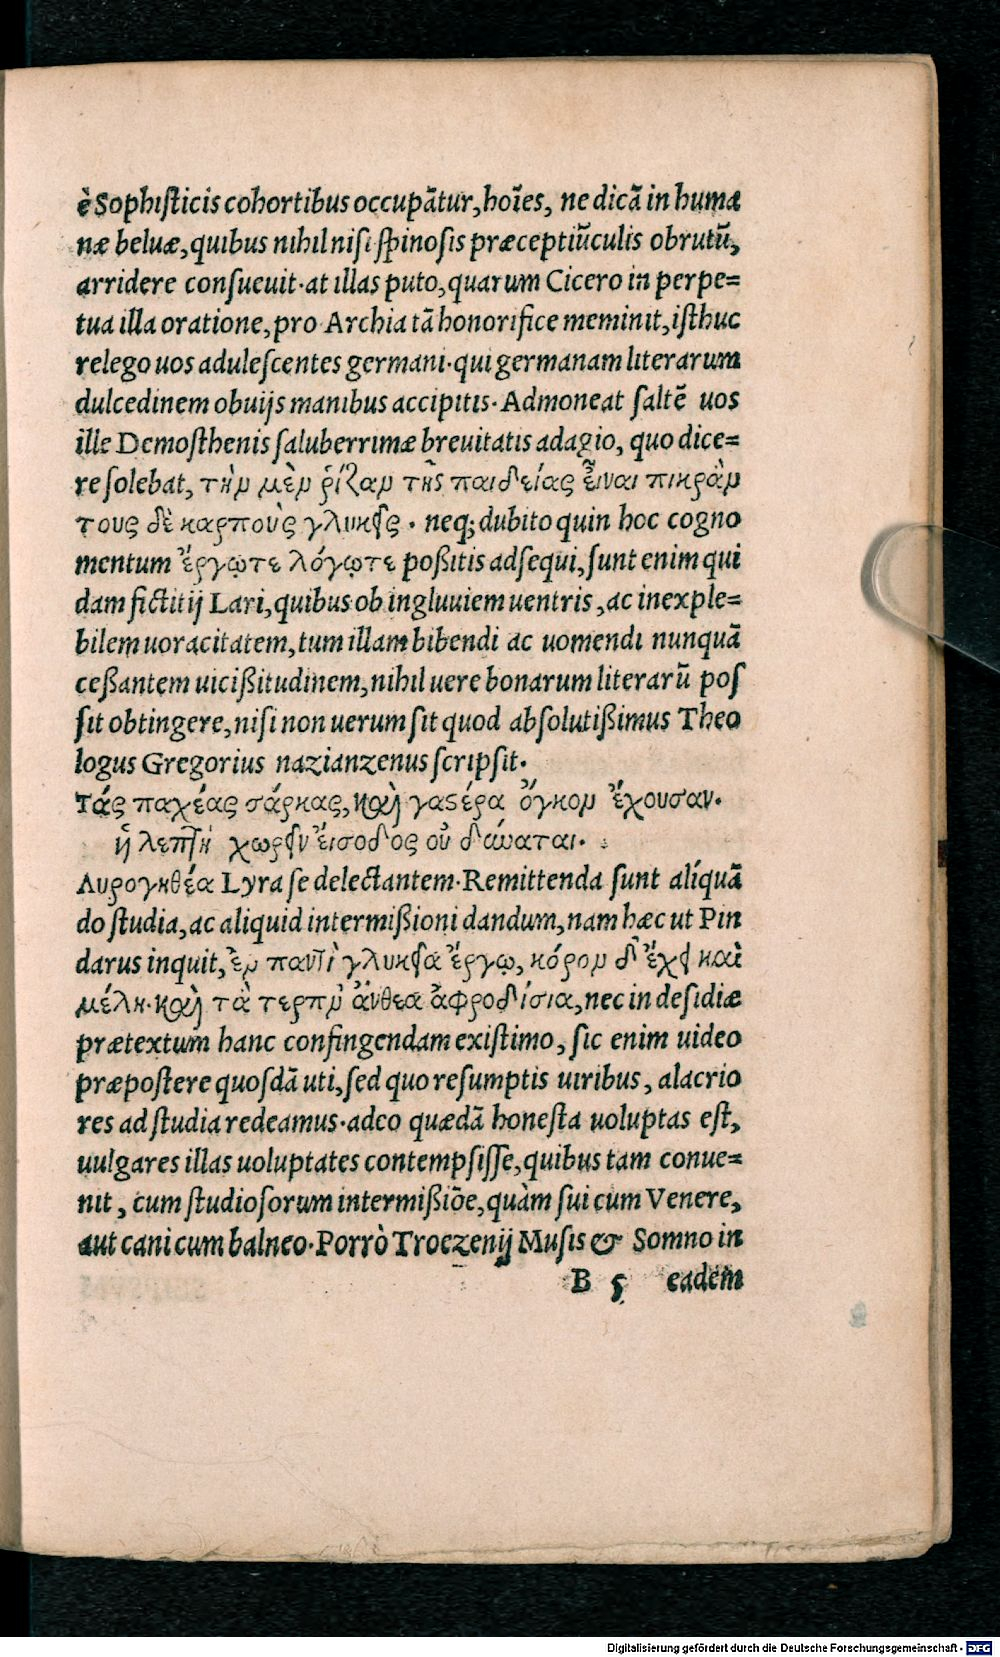 è Sophisticis cohortibus occupãtur, hoĩes, ne dicã in huma
næ beluæ, quibus nihil nisi spinosis præceptiũculis obrutũ,
arridere consueuit·at illas puto, quarum Cicero in perpe=
tua illa oratione, pro Archia tã honorifice meminit, isthuc
relego uos adulescentes germani·qui germanam literarum
dulcedinem obuijs manibus accipitis·Admoneat saltẽ uos
ille Demosthenis saluberrimæ breuitatis adagio, quo dice=
re solebat, τὴν μὲν ῥίζαν τῆς παιδείας εἶναι πικρὰν
τους δὲ καρποὺς γλυκεῖς · neq; dubito quin hoc cogno
mentum ἔργῳτε λόγῳτε poßitis adsequi, sunt enim qui
dam fictitij Lari, quibus ob ingluuiem uentris, ac inexple=
bilem uoracitatem, tum illam bibendi ac uomendi nunquã
ceßantem uicißitudinem, nihil uere bonarum literarũ pos
sit obtingere, nisi non uerum sit quod absolutißimus Theo
logus Gregorius nazianzenus scripsit·
Τάς παχέας σάρκας, καὶ γαστέρα ὄγκον ἔχουσαν·
ἡ λεπτὴ χωρεῖν εἴσοδος οὐ δύναται·
Λυρογηθέα Lyra se delectantem·Remittenda sunt aliquã
do studia, ac aliquid intermißioni dandum, nam hæc ut Pin
darus inquit, ἐν παντὶ γλυκεῖα ἔργῳ, κόρον δ' ἔχει καὶ
μέλη·καὶ τὰ τερπν' ἄνθεα ἀφροδίσια, nec in desidiæ
prætextum hanc confingendam existimo, sic enim uideo
præpostere quosdã uti, sed quo resumptis uiribus, alacrio
res ad studia redeamus·adeo quædã honesta uoluptas est,
uulgares illas uoluptates contempsisse, quibus tam conue=
nit, cum studiosorum intermißiõe, quàm sui cum Venere,
aut cani cum balneo·Porrò Troezenij Musis & Somno in
B 5 eadem
Digitalisierung gefördert durch die Deutsche Forschungsgemeinschaft - DFG